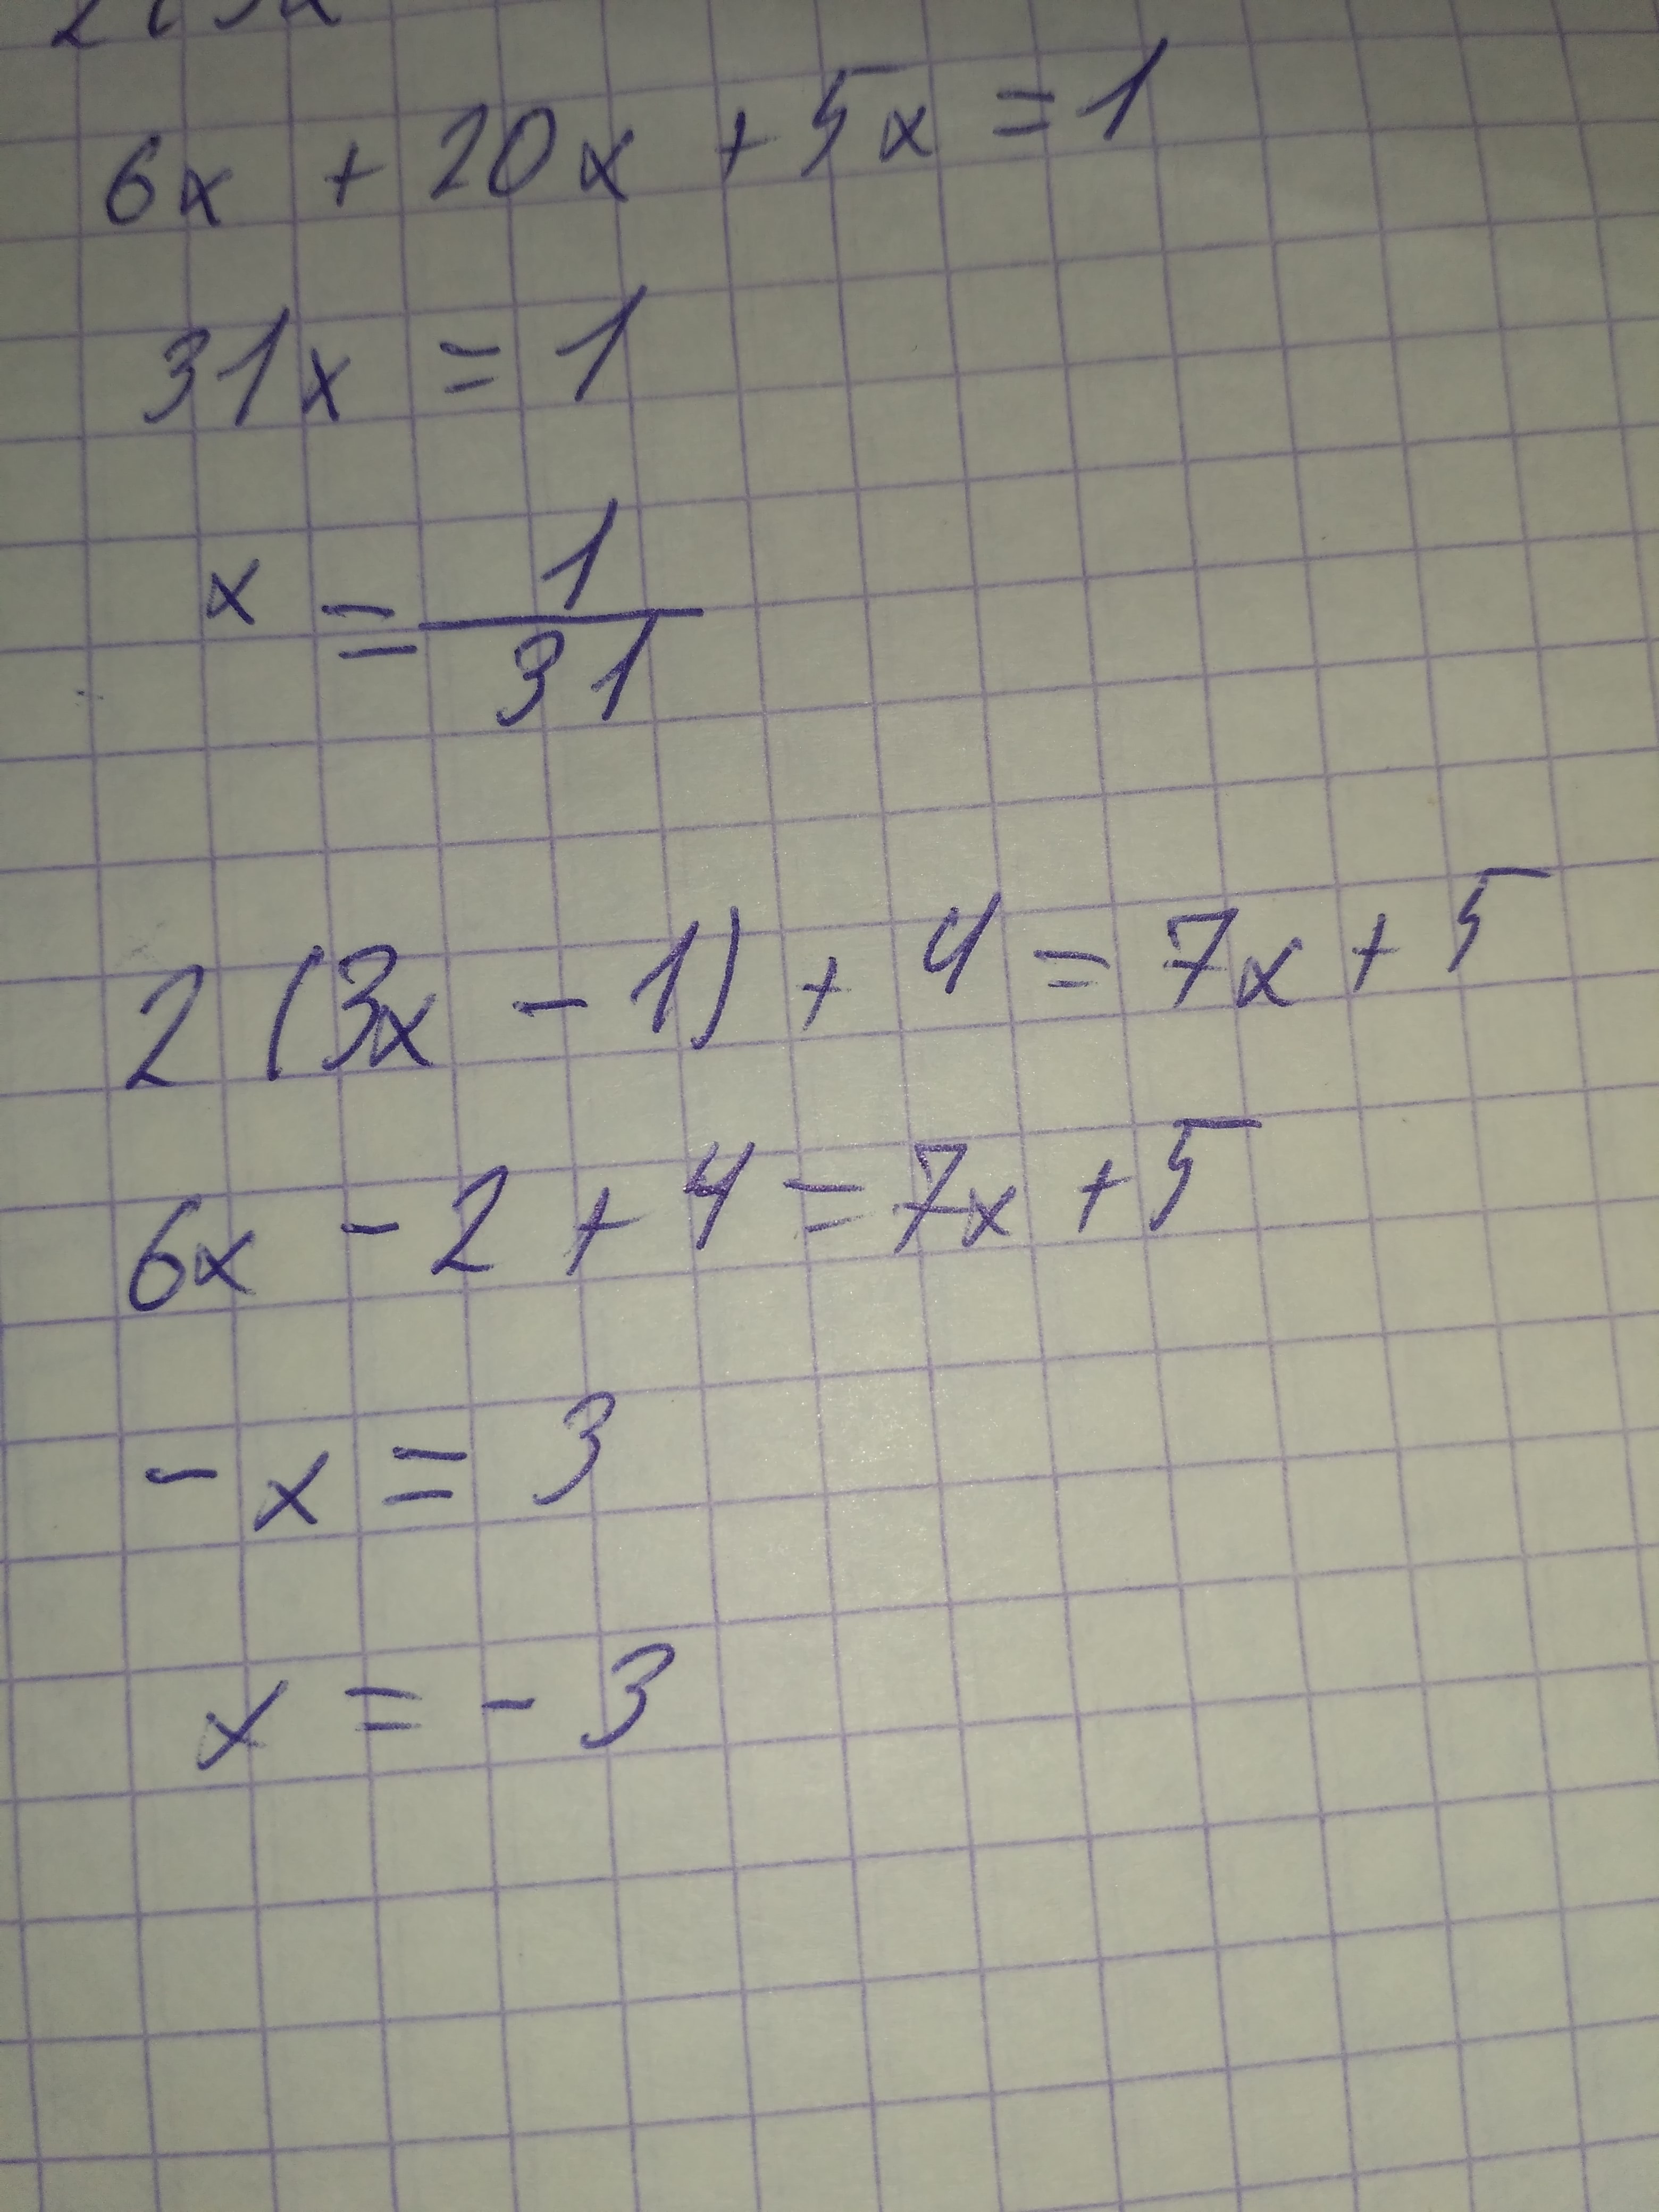 6x + 20x + 5x = 1
31x = 1
x = 1/31
2 (3x - 1) + 4 = 7x + 5
6x - 2 + 4 = 7x + 5
- x = 3
x = - 3